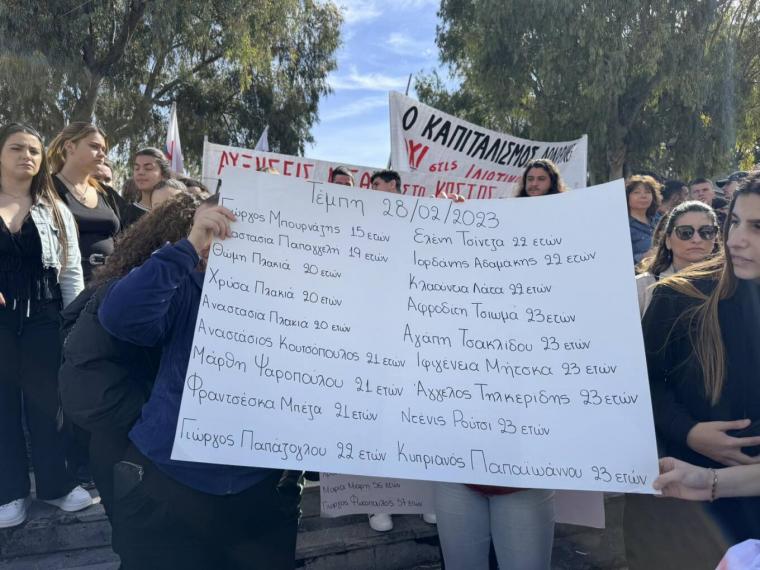 Ο ΚΑΠΙΤΑΛΙΣΜΟΣ
ΑΥΞΗΣΕΙΣ
ΣΤΟ ΚΟΣΤΟΣ
ΣΤΙΣ
Τέμπη 28/02/2023
Γιώργος Μπουρνάζης 15 ετών
Αναστασία Παπαγγελή 19 ετών
Θώμη Πλακιά 20 ετών
Χρύσα Πλακιά 20 ετών
Αναστασία Πλακιά 20 ετών
Αναστάσιος Κουτσόπουλος 21 ετών
Μάρθη Ψαροπούλου 21 ετών
Φραντσέσκα Μπέζα 21 ετών
Γιώργος Παπάζογλου 22 ετών
Ελένη Τσίντζα 22 ετών
Ιορδάνης Αδαμάκης 22 ετών
Κλαούντια Λάτα 22 ετών
Αφροδίτη Τσιωμά 23 ετών
Αγάπη Τσακλίδου 23 ετών
Ιφιγένεια Μήτσκα 23 ετών
Άγγελος Τηλκερίδης 23 ετών
Ντένις Ρούτσι 23 ετών
Κυπριανός Παπαϊωάννου 23 ετών
Μαρία
56 ετών
Γιώργος
57 ετών